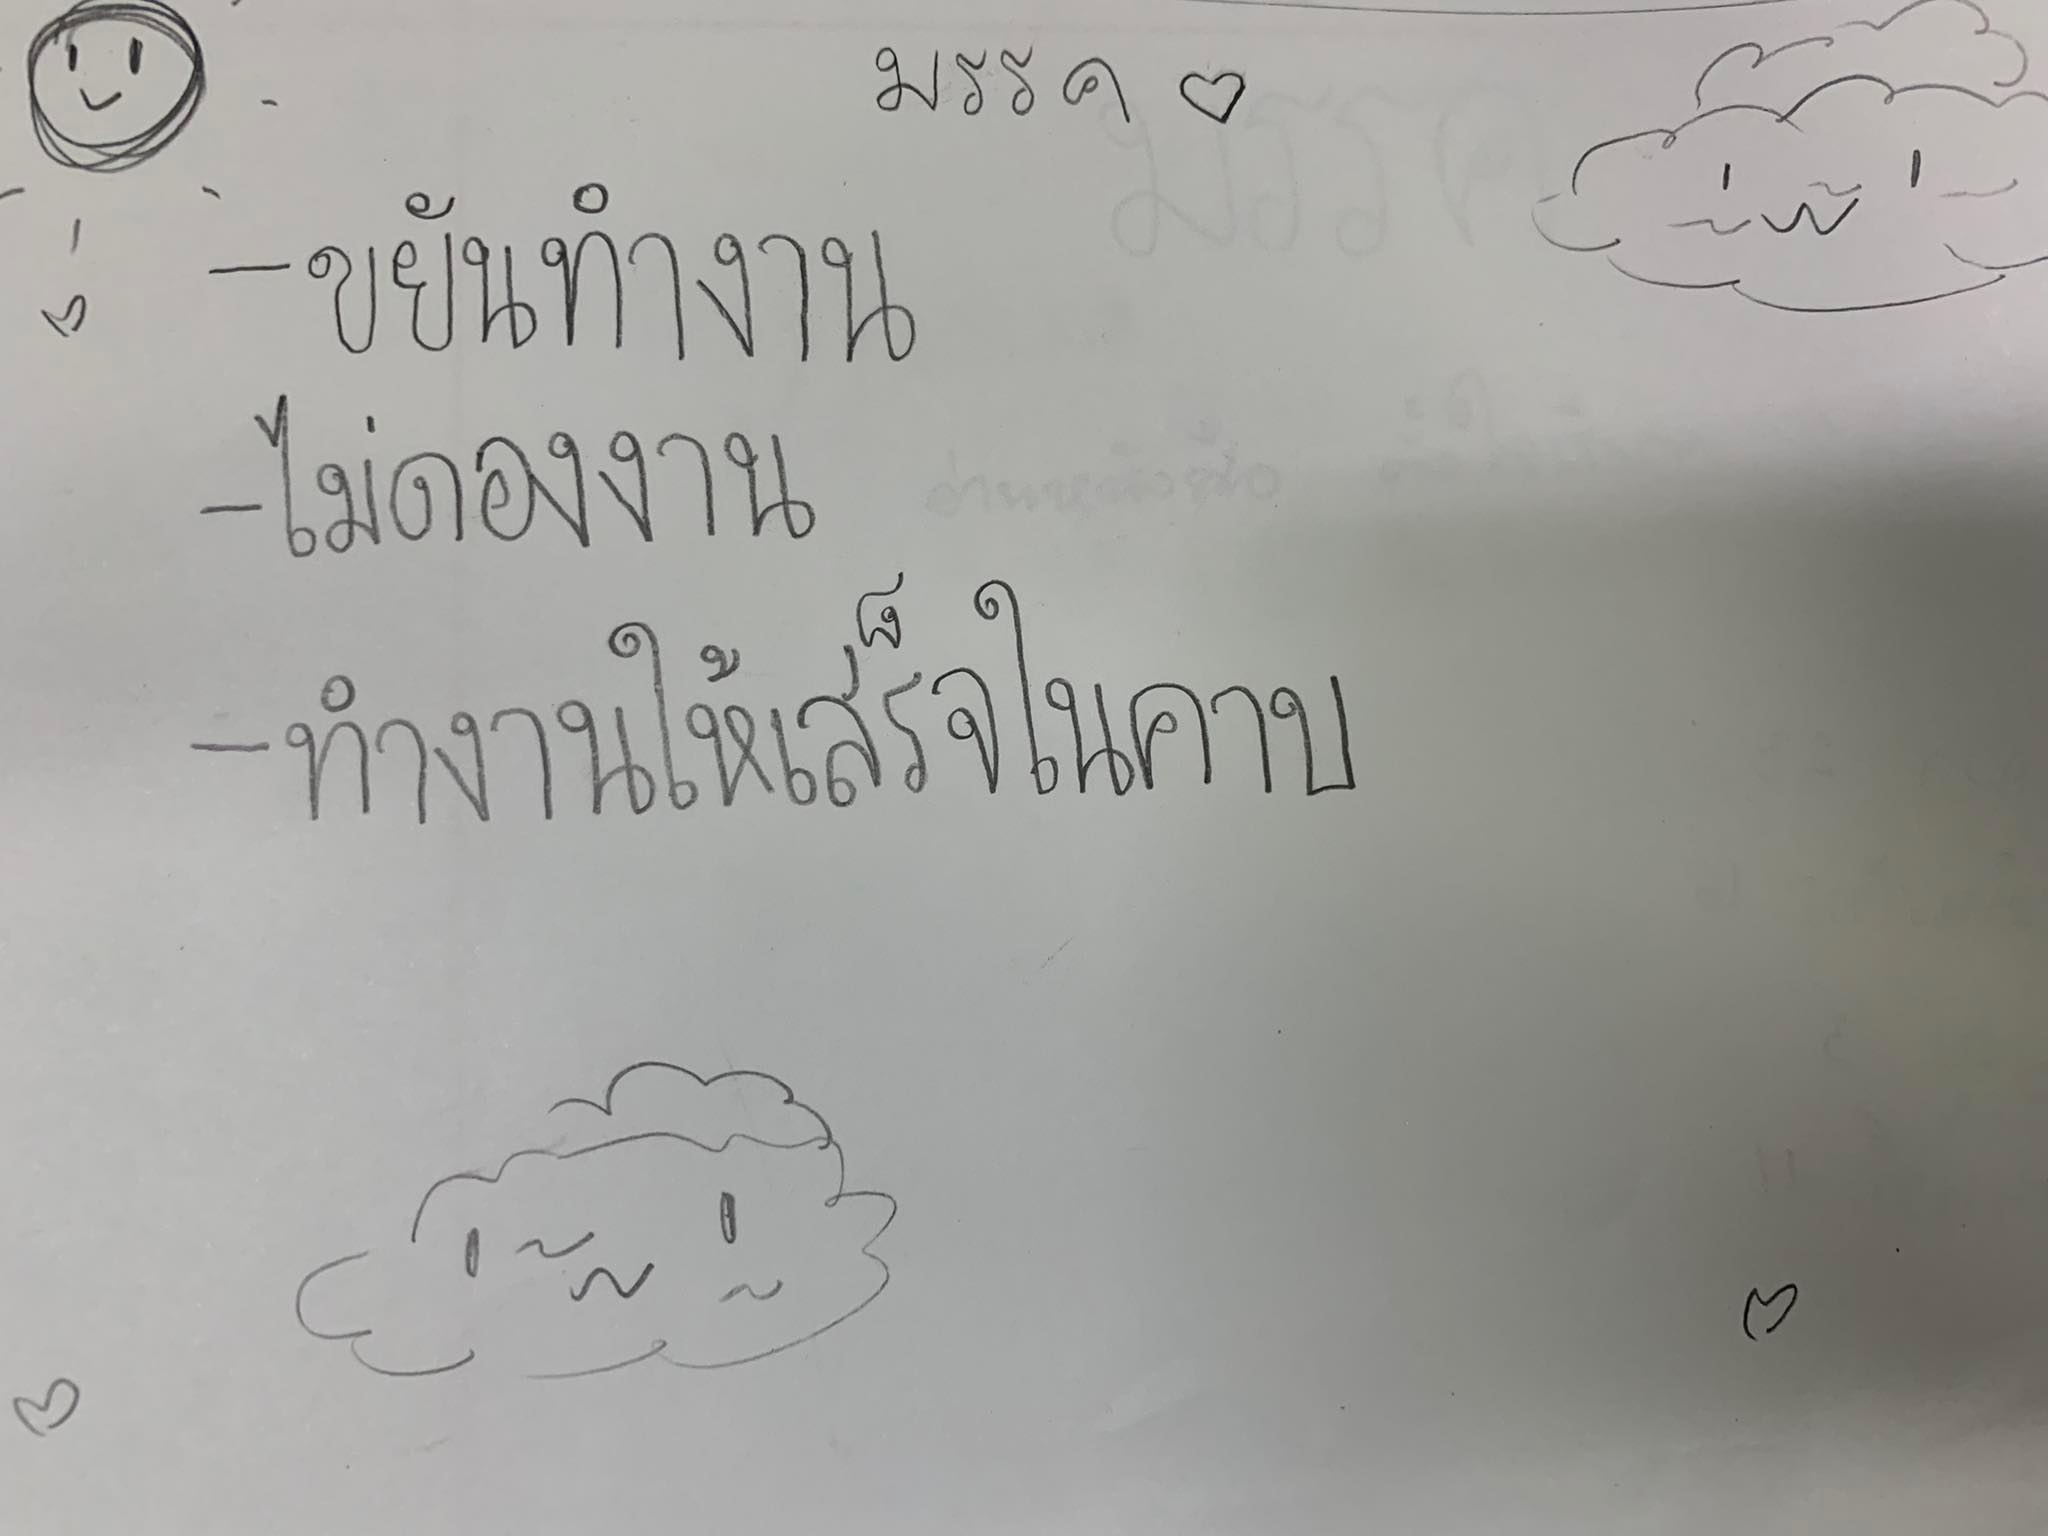 มรรค ♡
-ขยันทำงาน
-ไม่ดองงาน
-ทำงานให้เสร็จในคาบ